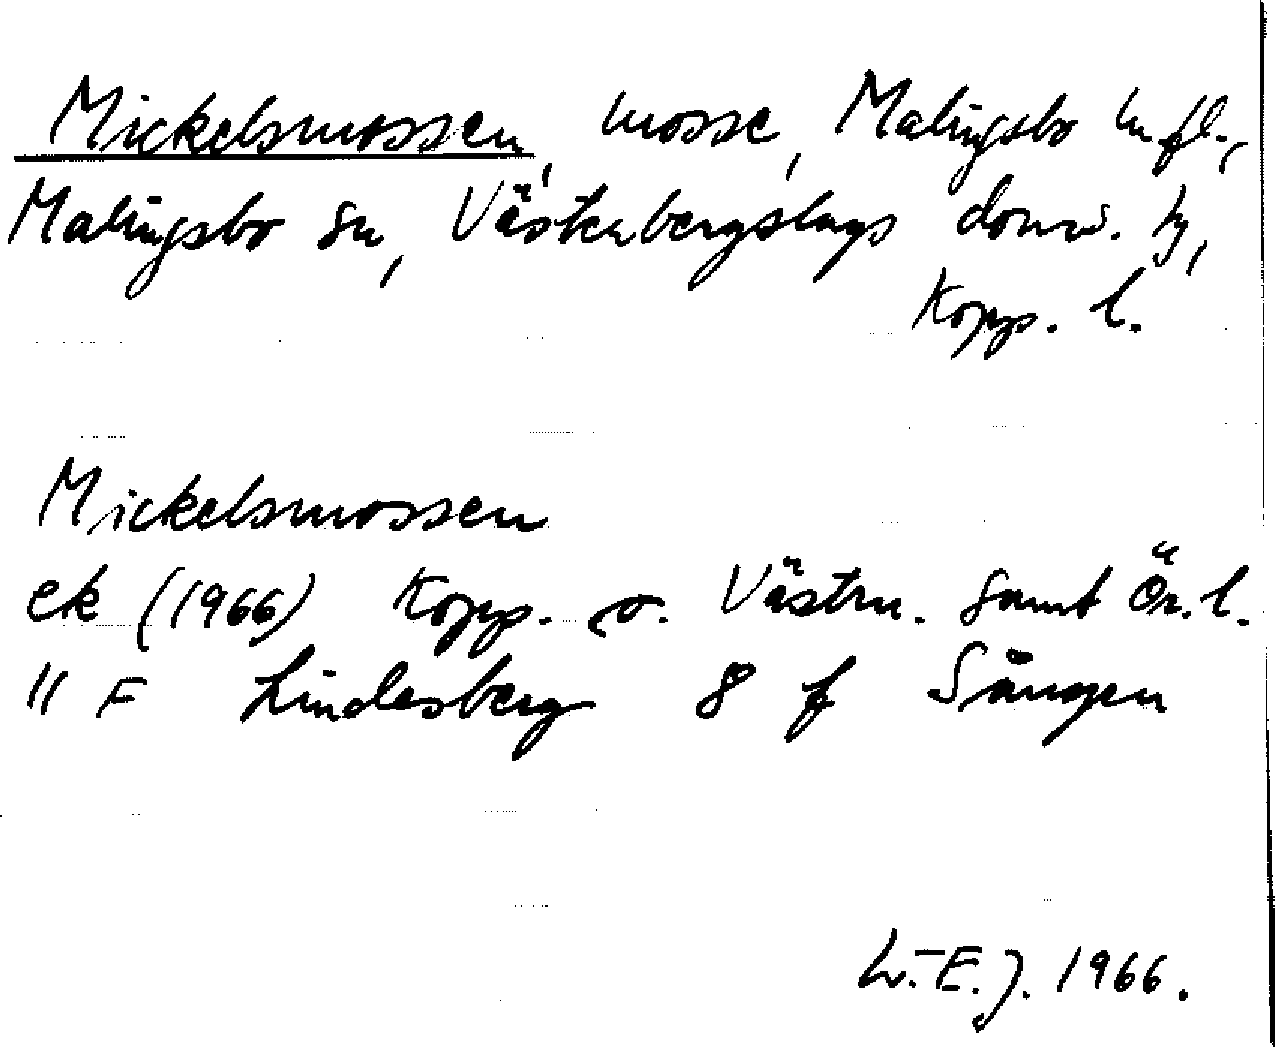 Mickelsmossen, mosse, Malingsbo m fl.,
Malingsbo sn, Västerbergslags doms. hg,
Kopp. l.
Mickelsmossen
ek (1966) Kopp. o. Västm. samt Ör. l.
11 F Lindesberg 8 f Sången
L.-E. J. 1966.